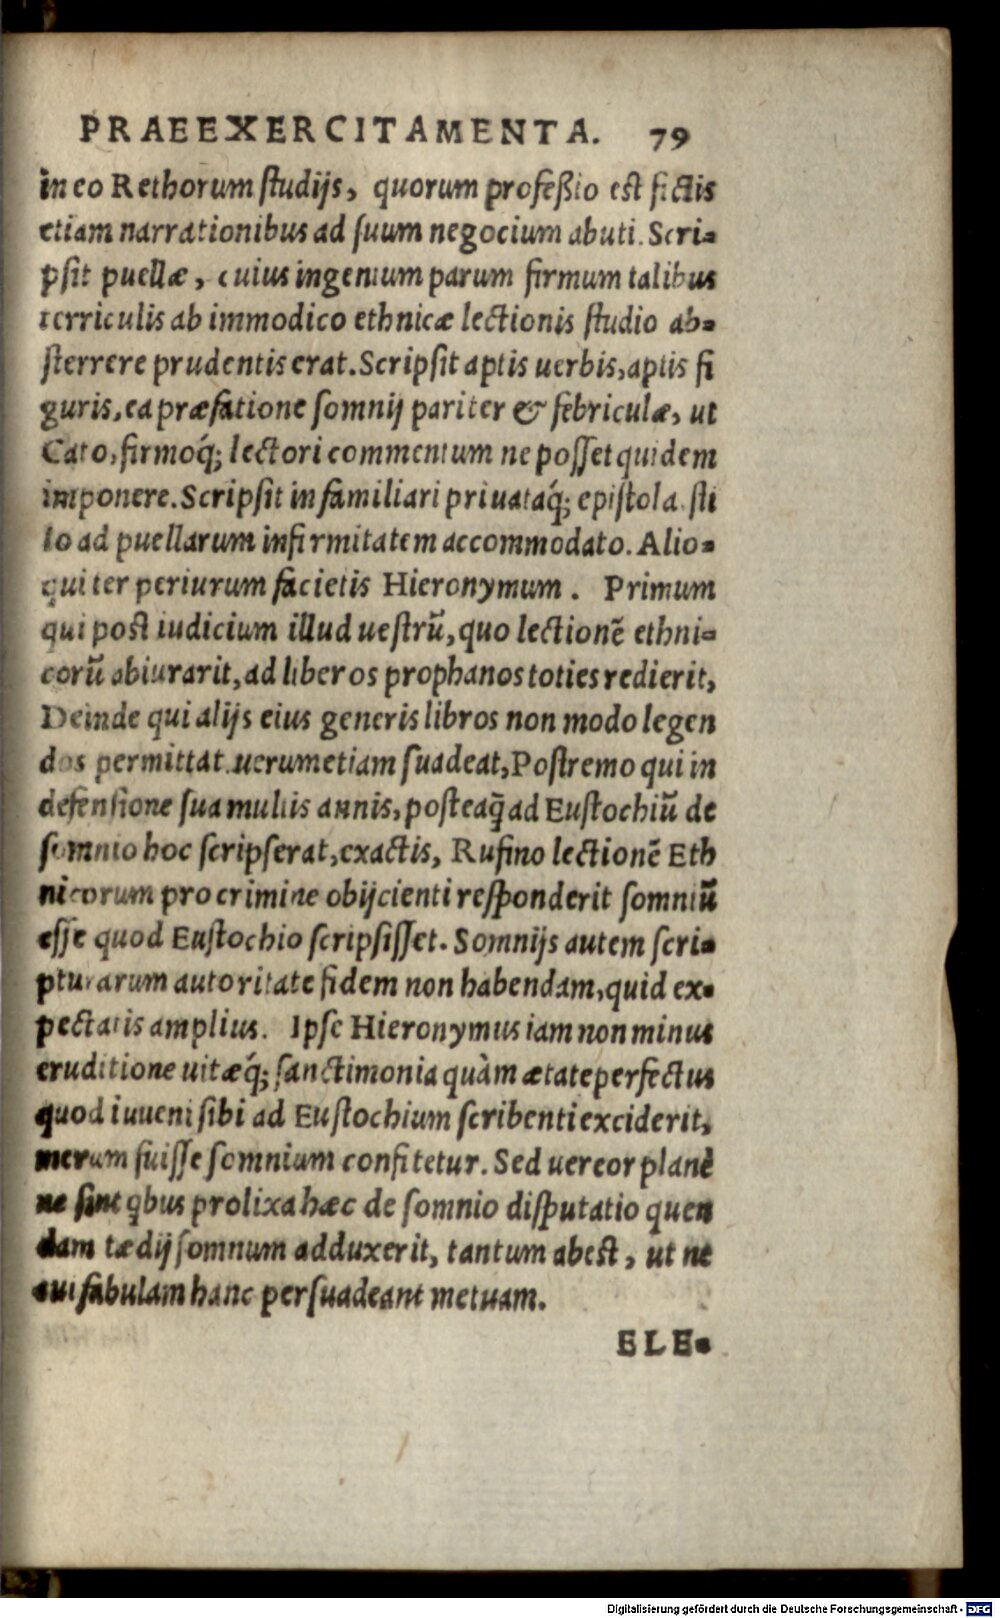 PRAEEXERCITAMENTA. 79
in eo Rethorum studijs, quorum profeßio est fictis
etiam narrationibus ad suum negocium abuti. Scri-
psit puellæ, cuius ingenium parum firmum talibus
terriculis ab immodico ethnicæ lectionis studio ab-
sterrere prudentis erat. Scripsit aptis uerbis, aptis fi
guris, ea præfatione somnij pariter & febriculæ, ut
Cato, firmoq́; lectori commentum ne posset quidem
imponere. Scripsit in familiari priuataq́; epistola. sti
lo ad puellarum infirmitatem accommodato. Alio-
qui ter periurum facietis Hieronymum. Primum
qui post iudicium illud uestrũ, quo lectionẽ ethni-
corũ abiurarit, ad liberos prophanos toties redierit,
Deinde qui alijs eius generis libros non modo legen
dos permittat uerumetiam suadeat, Postremo qui in
defensione sua multis annis, posteaq̃ ad Eustochiũ de
somnio hoc scripserat, exactis, Rufino lectionẽ Eth
nicorum pro crimine obijcienti responderit somniũ
esse quod Eustochio scripsisset. Somnijs autem scri-
pturarum autoritate fidem non habendam, quid ex-
pectatis amplius. Ipse Hieronymus iam non minus
eruditione uitæq́; sanctimonia quàm ætate perfectus
quod iuueni sibi ad Eustochium scribenti exciderit,
merum fuisse somnium confitetur. Sed uereor planè
ne sint qbus prolixa hæc de somnio disputatio quen
dam tædij somnum adduxerit, tantum abest, ut ne
cui fabulam hanc persuadeant metuam.
ELE-
Digitalisierung gefördert durch die Deutsche Forschungsgemeinschaft - DFG